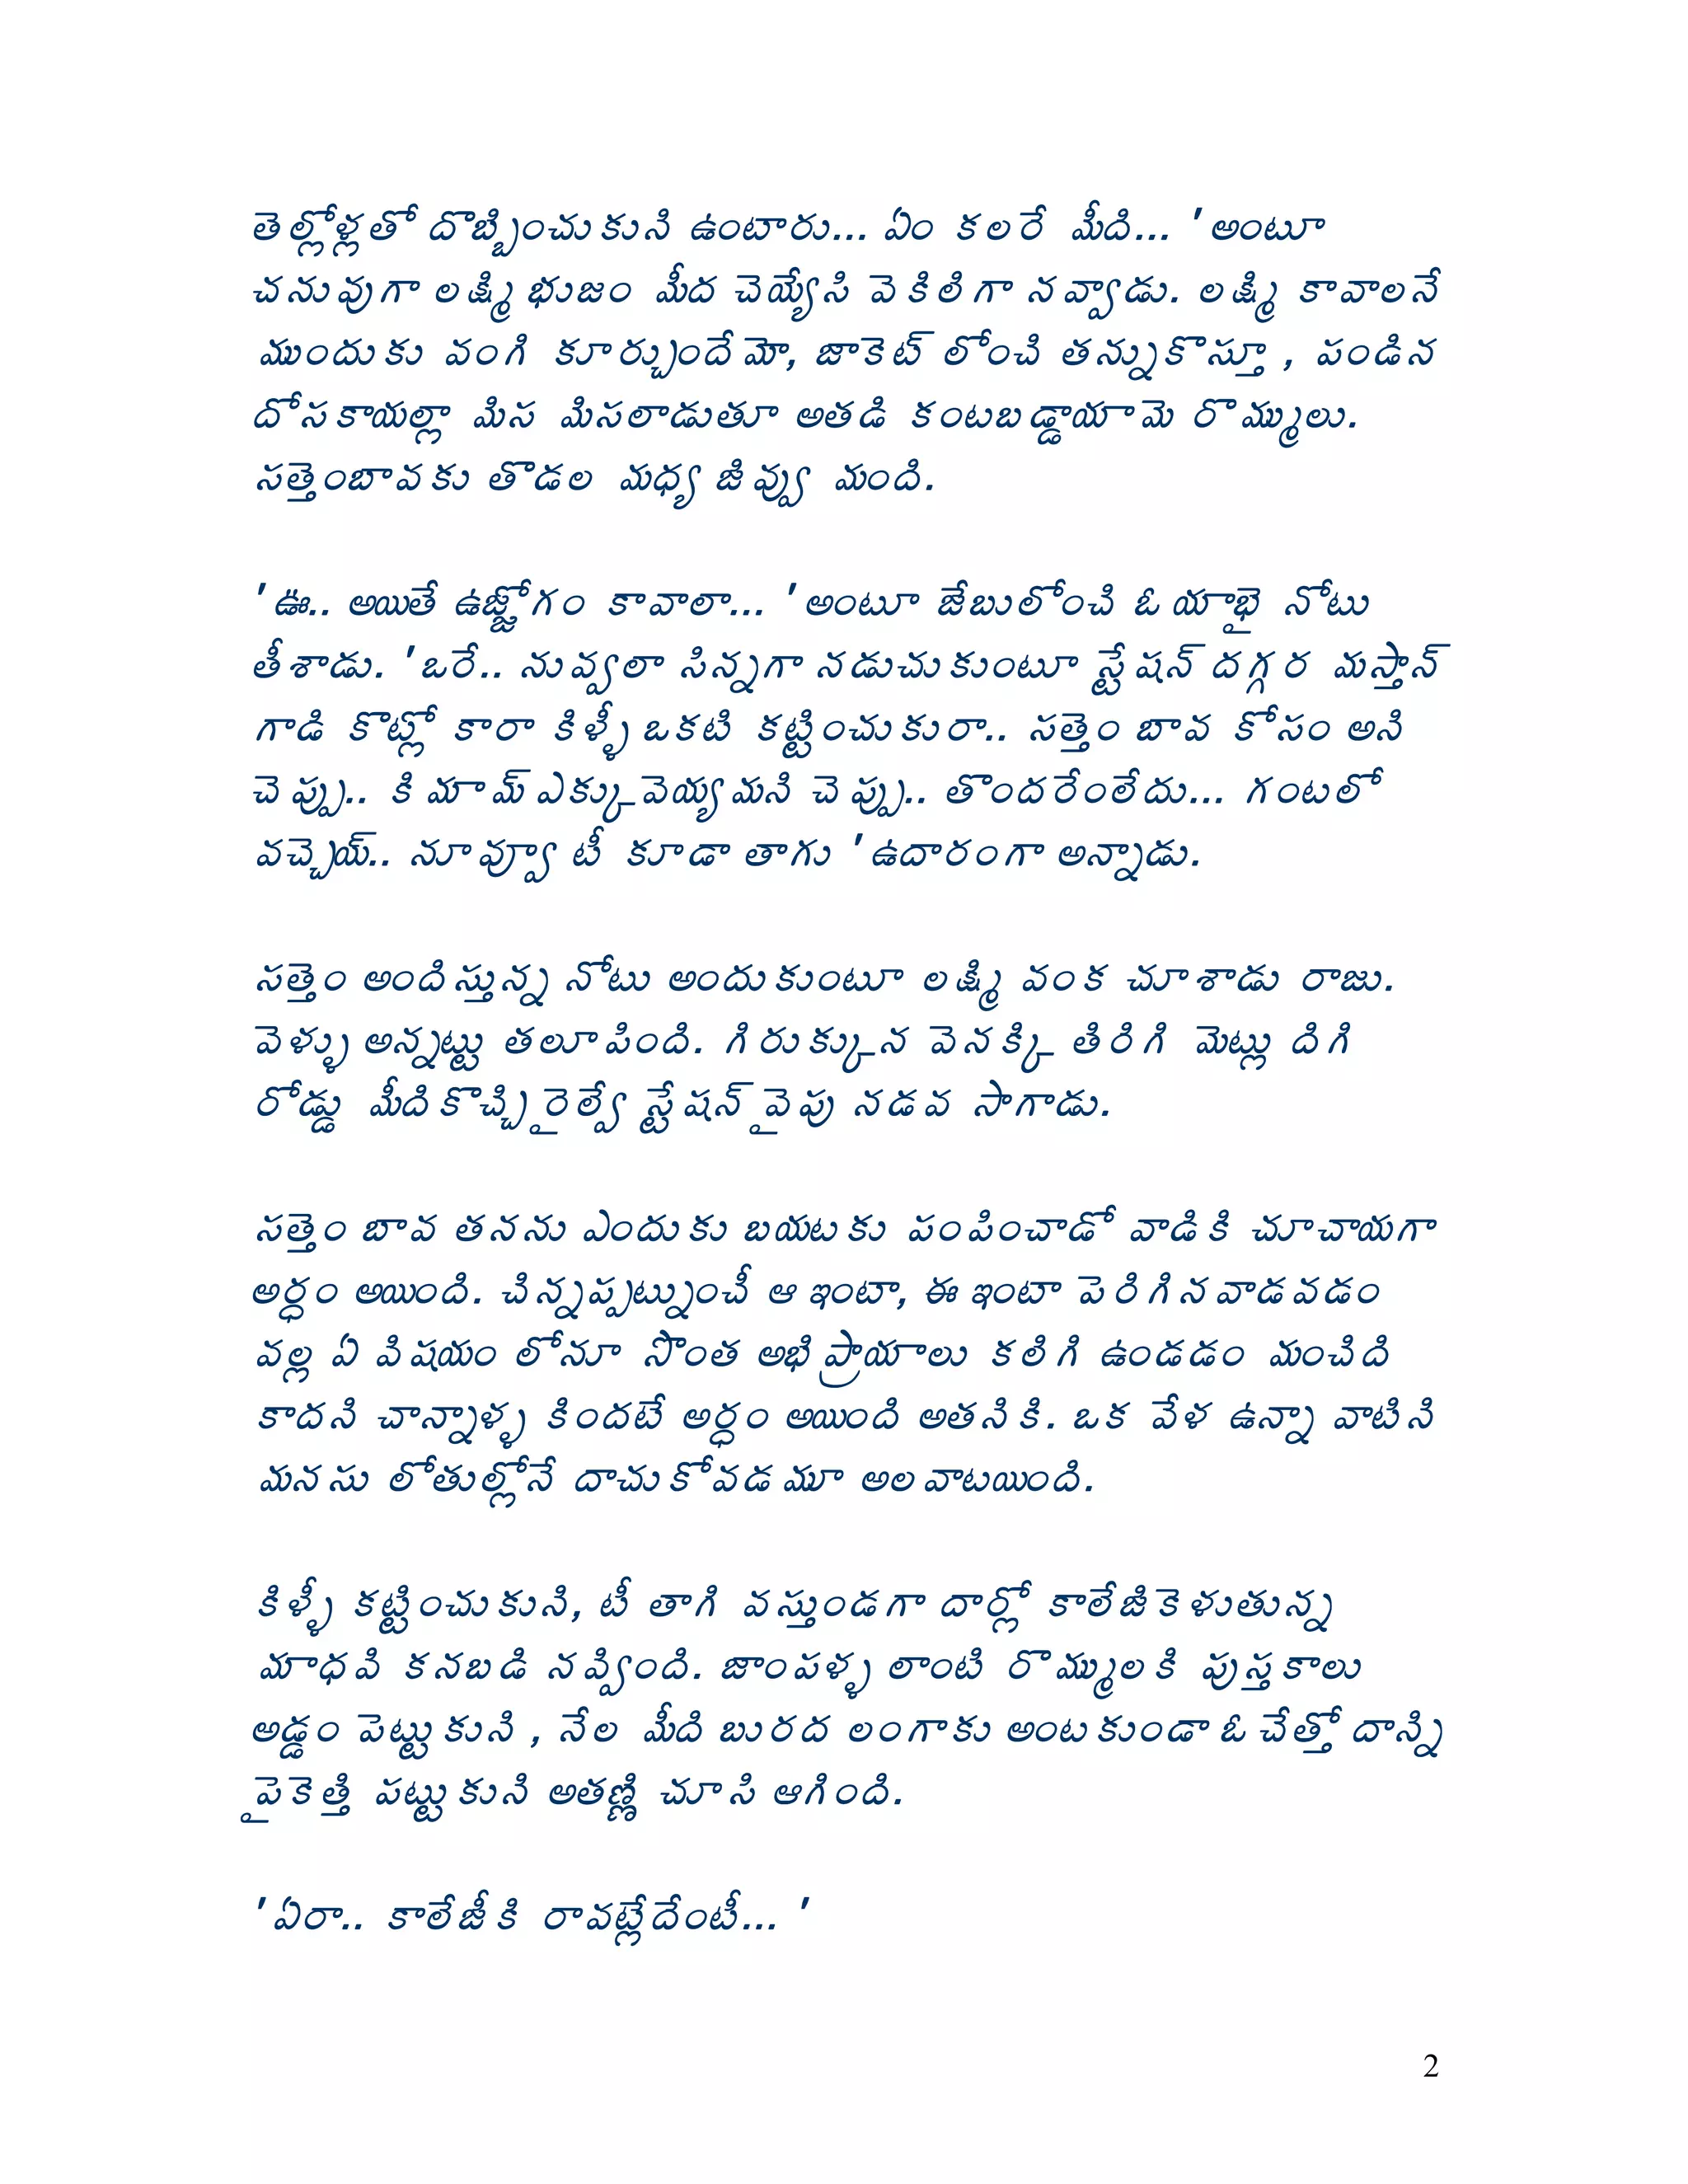 తెల్లోళ్లతో దొబ్బించుకుని ఉంటారు... ఏం కలరే మీది... ' అంటూ
చనువుగా లక్ష్మి భుజం మీద చెయ్యేసి వెకిలిగా నవ్వాడు. లక్ష్మి కావాలనే
ముందుకు వంగి కూర్చుందేమో, జాకెట్ లోంచి తన్నుకొస్తూ , పండిన
దోసకాయల్లా మిస మిసలాడుతూ అతడి కంటబడ్డాయామె రొమ్ములు.
సత్తెంబావకు తొడల మధ్య జివ్వు మంది.

' ఊ.. అయితే ఉజ్జోగం కావాలా... ' అంటూ జేబులోంచి ఓ యాభై నోటు
తీశాడు. ' ఒరే.. నువ్వలా సిన్నగా నడుచుకుంటూ స్టేషన్ దగ్గర మస్తాన్
గాడి కొట్లో కారా కిళ్ళీ ఒకటి కట్టించుకురా.. సత్తెం బావ కోసం అని
చెప్పు.. కిమామ్ ఎక్కువెయ్యమని చెప్పు.. తొందరేంలేదు... గంటలో
వచ్చెయ్.. నూవ్వూ టీ కూడా తాగు ' ఉదారంగా అన్నాడు.

సత్తెం అందిస్తున్న నోటు అందుకుంటూ లక్ష్మి వంక చూశాడు రాజు.
వెళ్ళు అన్నట్టు తలూపింది. గిరుక్కున వెనక్కి తిరిగి మెట్లు దిగి
రోడ్డు మీదికొచ్చి రైల్వే స్టేషన్ వైపు నడవ సాగాడు.

సత్తెం బావ తనను ఎందుకు బయటకు పంపించాడో వాడికి చూచాయగా
అర్ధం అయింది. చిన్నప్పట్నుంచీ ఆ ఇంటా, ఈ ఇంటా పెరిగినవాడవడం
వల్ల ఏ విషయం లోనూ సొంత అభిప్రాయాలు కలిగి ఉండడం మంచిది
కాదని చాన్నాళ్ళ కిందటే అర్ధం అయింది అతనికి. ఒక వేళ ఉన్నా వాటిని
మనసు లోతుల్లోనే దాచుకోవడమూ అలవాటయింది.

కిళ్ళీ కట్టించుకుని, టీ తాగి వస్తుండగా దార్లో కాలేజికెళుతున్న
మాధవి కనబడి నవ్వింది. జాంపళ్ళ లాంటి రొమ్ములకి పుస్తకాలు
అడ్డం పెట్టుకుని , నేల మీది బురద లంగాకు అంటకుండా ఓ చేత్తో దాన్ని
పైకెత్తి పట్టుకుని అతణ్ణి చూసి ఆగింది.

' ఏరా.. కాలేజీకి రావట్లేదేంటీ... '

2